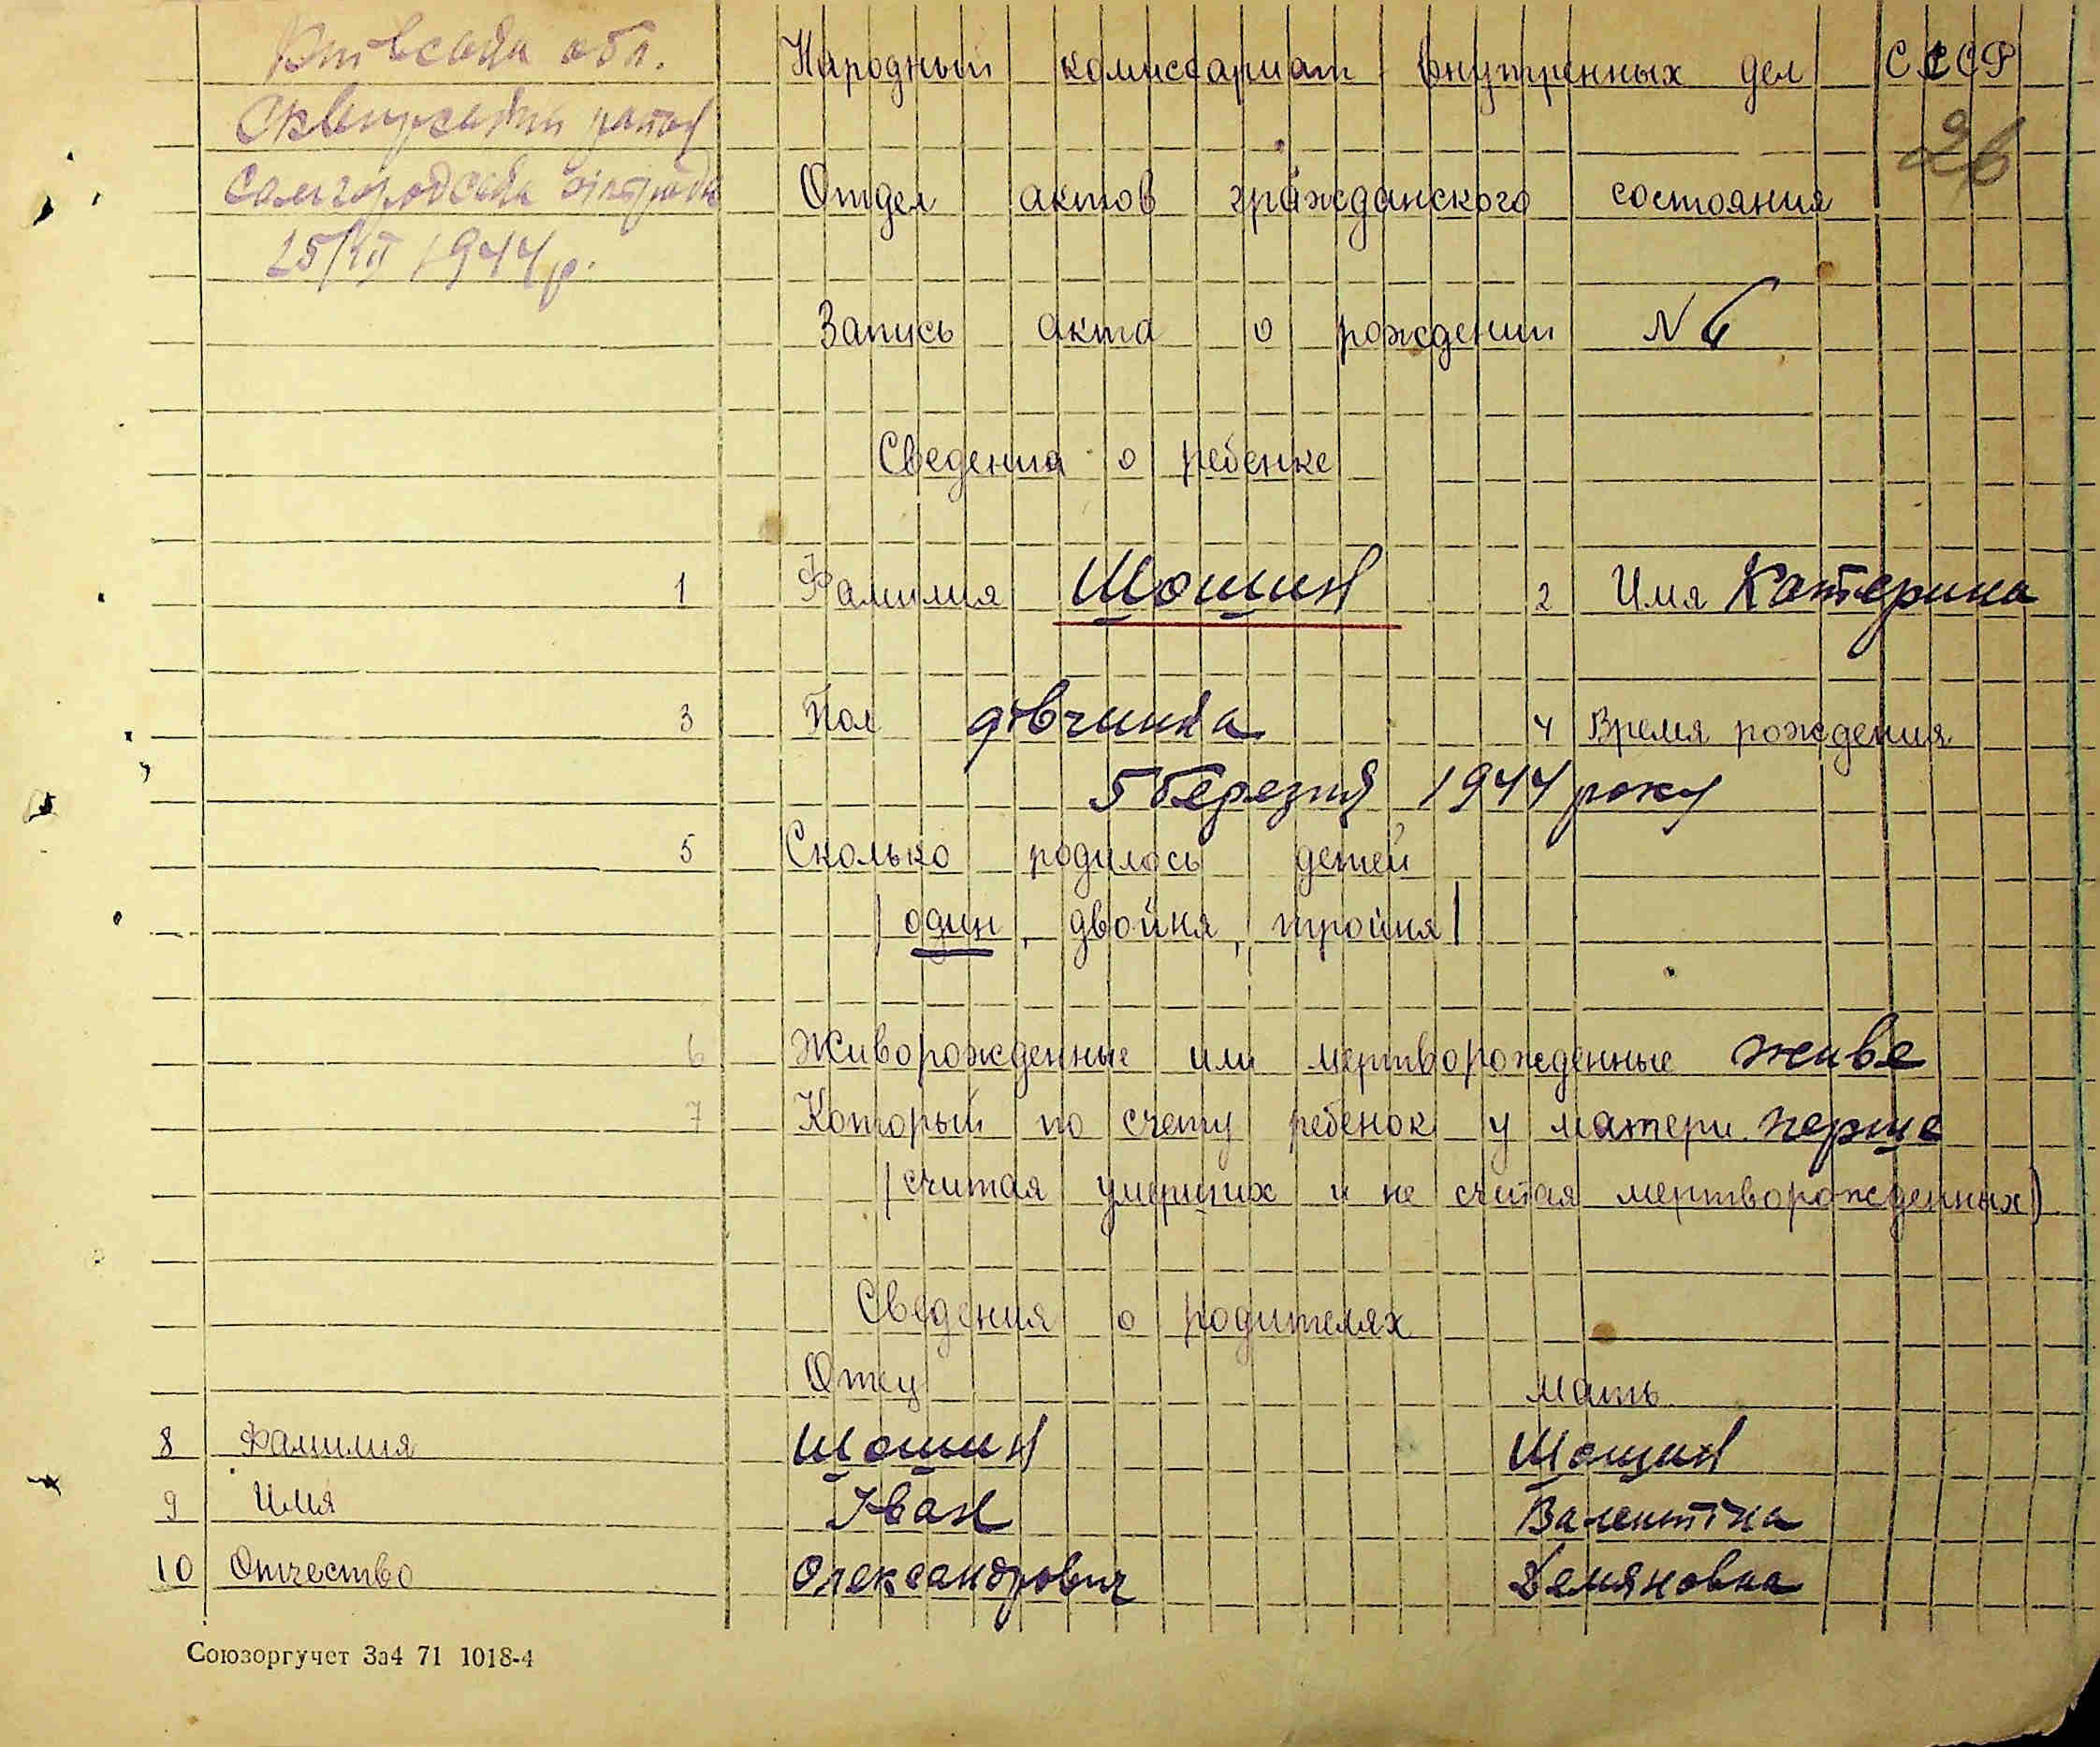 Київська обл.
Сквирський район
Самгородська сільрада
25/VII 1944 р.
Народный комиссариат внутренных дел СССР
26
Отдел актов гражданского состояния
Запись акта о рождении N 6
Сведения о ребенке
1 Фамилия Шошин 2 Имя Катерина
3 Пол дівчинка 4 Время рождения
5 березня 1944 року
5 Сколько родилось детей
(один, двойня, тройня)
6 Живорожденные или мертворожденные живе
7 Который по счету ребенок у матери перше
(считая умерших и не считая мертворожденных)
Сведения о родителях
Отец Мать
8 Фамилия Шошин Шошин
9 Имя Іван Валентіна
10 Отчество Олександрович Демяновна
Союзоргучет За4 71 1018-4